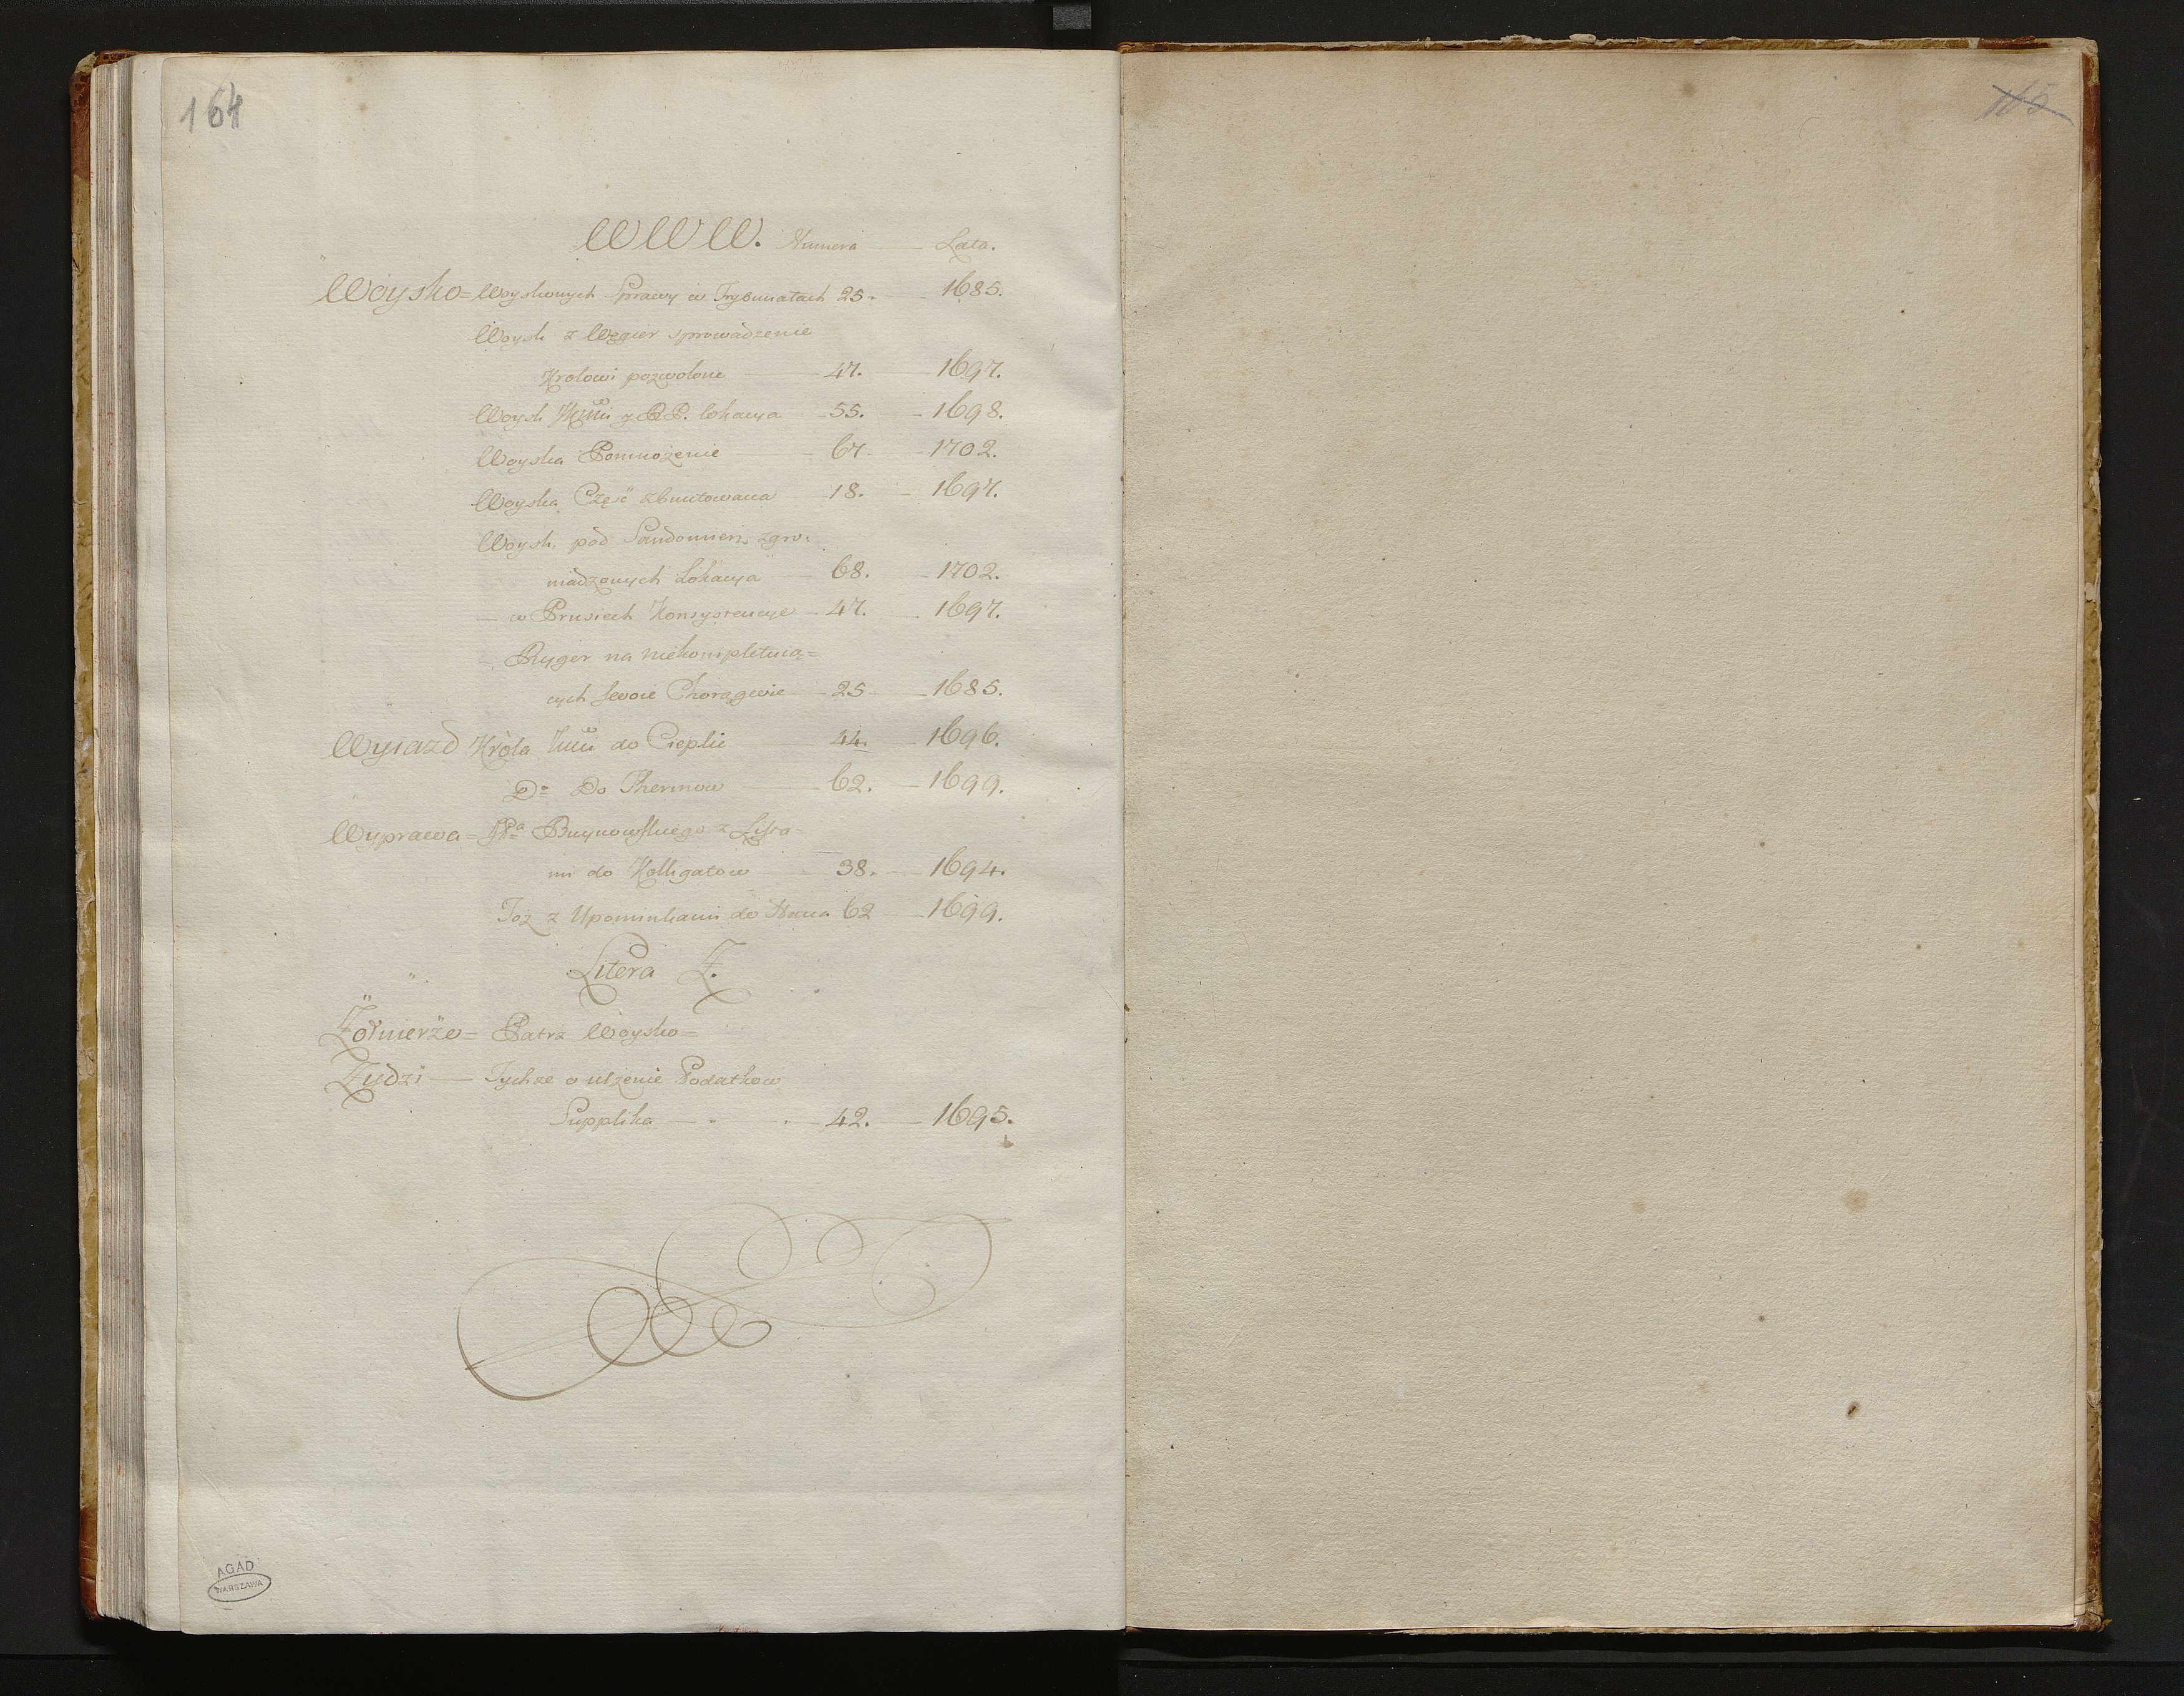 164
165
W W W. Numera Lata.
Woysko = Woyskowych Sprawy w Trybunałach 25. 1685.
Woysk z Węgier sprowadzenie
Krolowi pozwolone 47. 1697.
Woysk y R. P. lokacya 55. 1698.
Woyska Pomnożenie 67. 1702.
Woyska Część zbuntowana 18. 1697.
Woysk pod Sandomierz. zgro-
madzonych Lokacya 68. 1702.
— w Prusiech Konsystencye 47. 1697.
— Rygor na niekompletuią=
cych swoie Chorągwie 25 1685.
Wyiazd Króla do Cieplic 44. 1696.
Do Do Thermow 62. 1699.
Wyprawa = Pa Bruynowskiego z Lista-
mi do Kolligatow 38. 1694.
Toż z Upominkami do Hana 62 1699.
Litera Z.
Żołnierze = Patrz Woysko =
Żydzi — Tychże o ulżenie Podatkow
Supplika — 42. — 1695.
AGAD
WARSZAWA